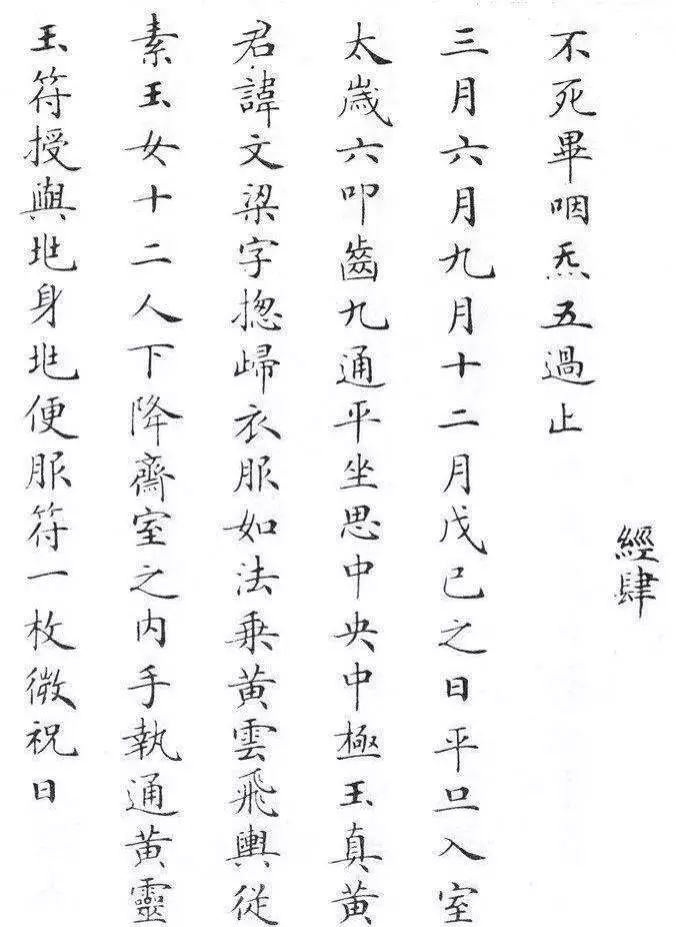 經肆
不死畢咽炁五過止
三月六月九月十二月戊己之日平旦入室
太嵗六叩齒九通平坐思中央中極玉真黃
君諱文梁字揔歸衣服如法乗黃雲飛輿從
素玉女十二人下降齋室之内手執通黃靈
玉符授與兆身兆便服符一枚微祝曰